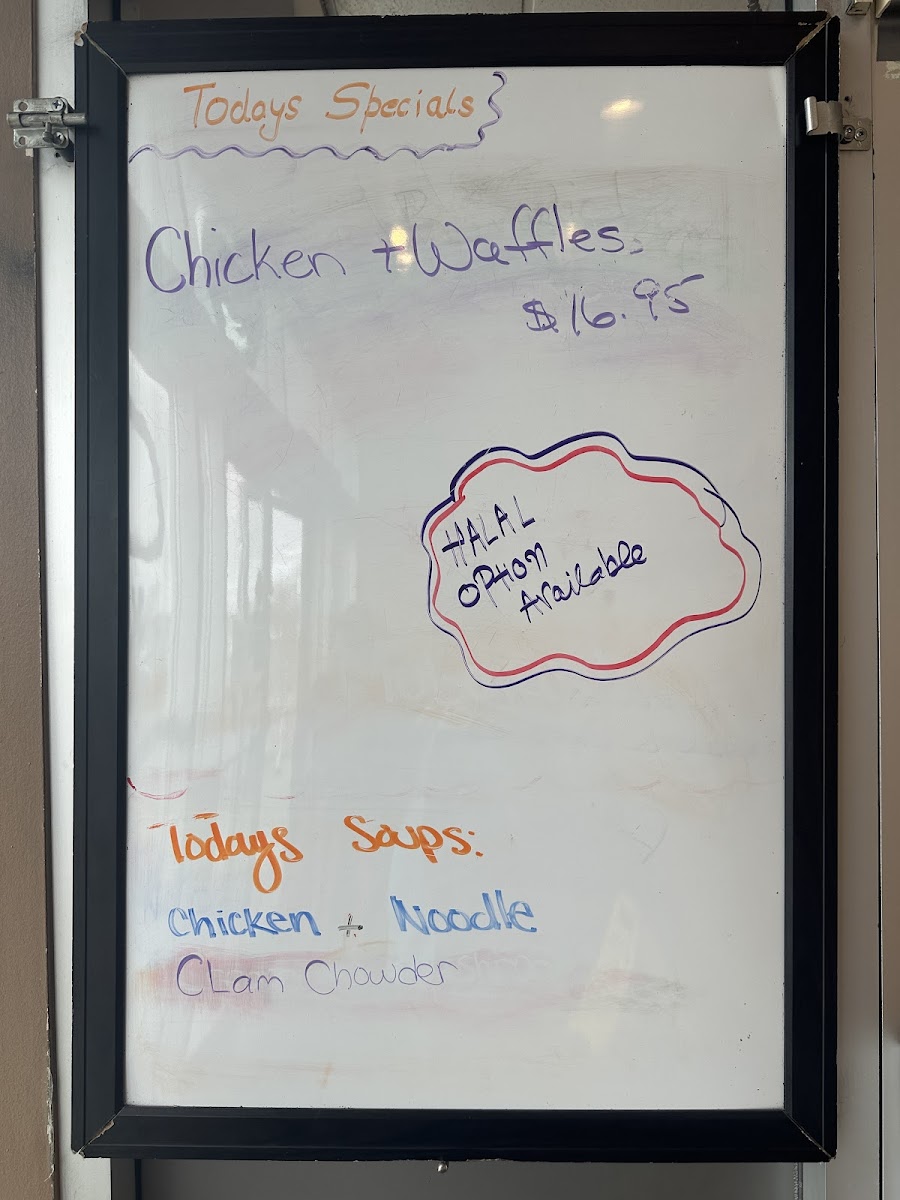 Todays Specials
Chicken + Waffles.
$16.95
HALAL
OPTION
Available
Todays Soups:
Chicken + Noodle
CLam Chowder